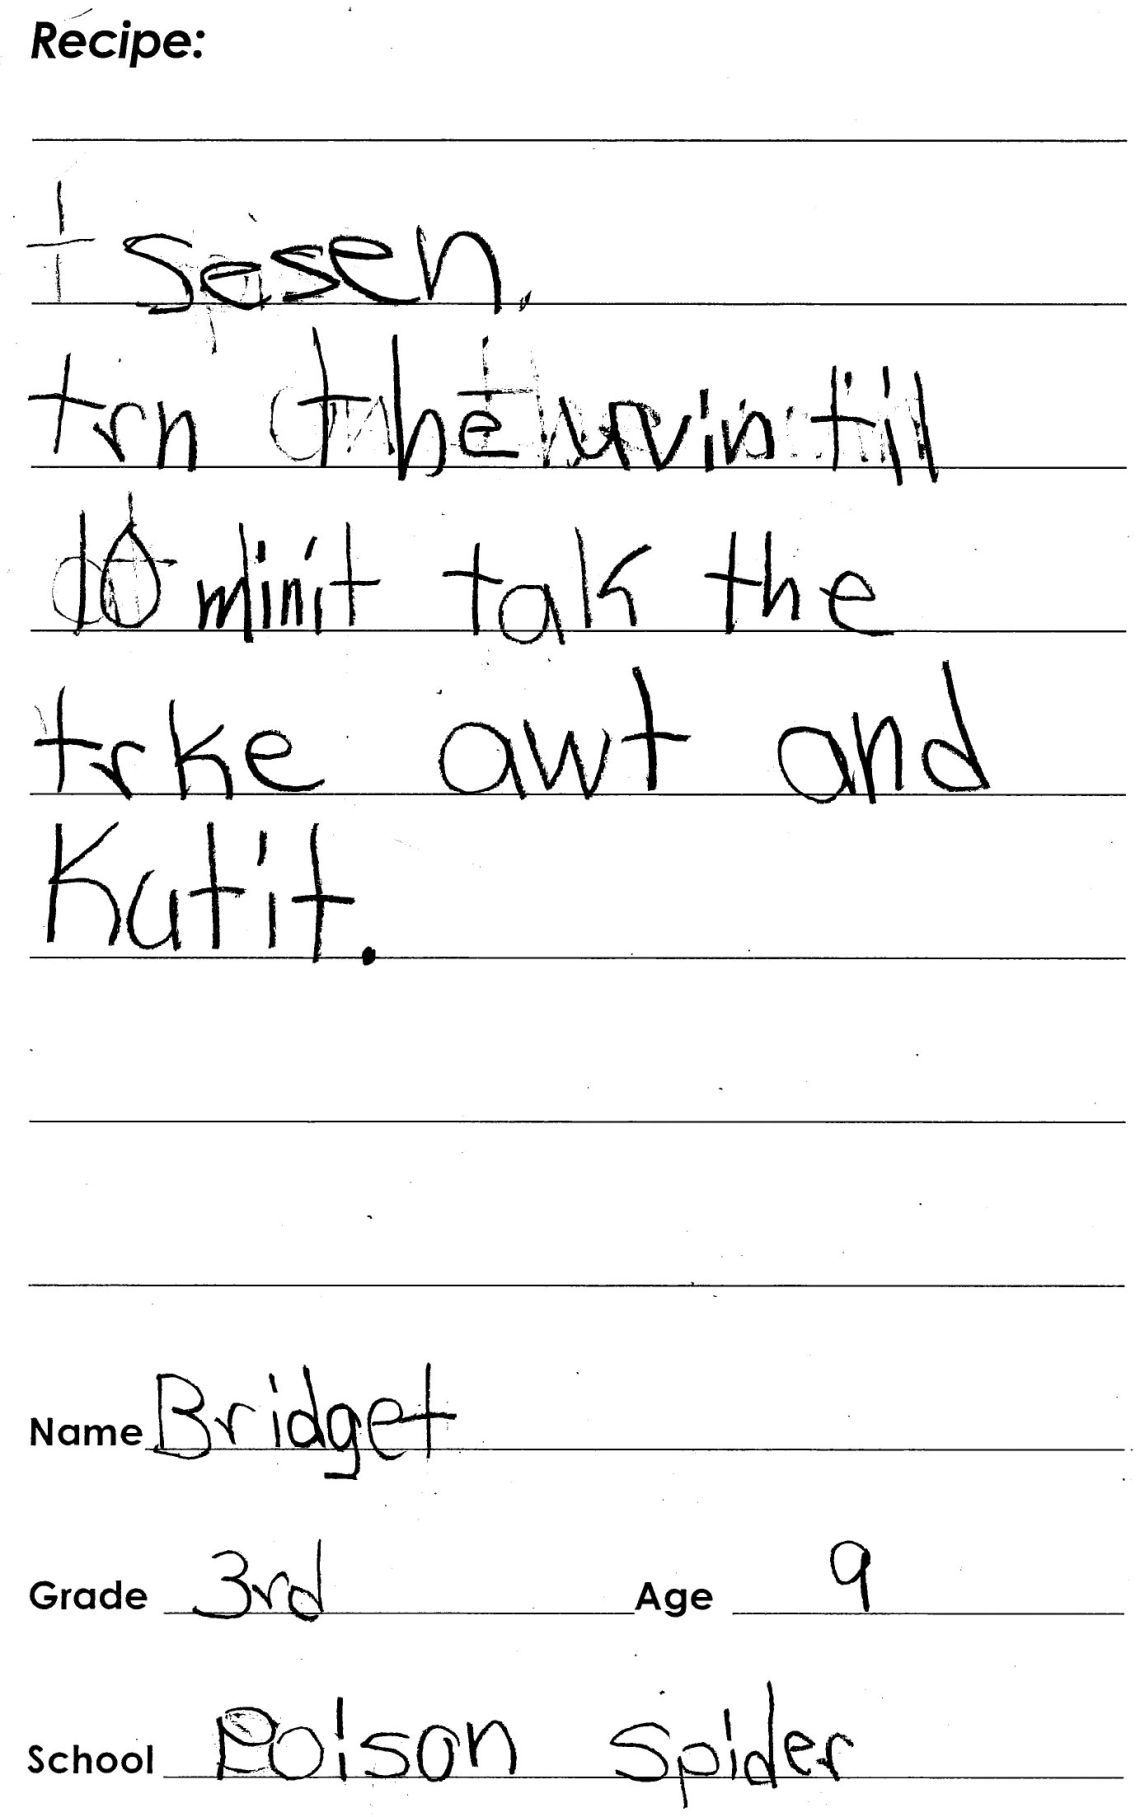 Recipe:
+ sesen.
trn the uvin till
10 minit tak the
trke awt and
Kut it.
Name Bridget
Grade 3rd Age 9
School Poison Spider